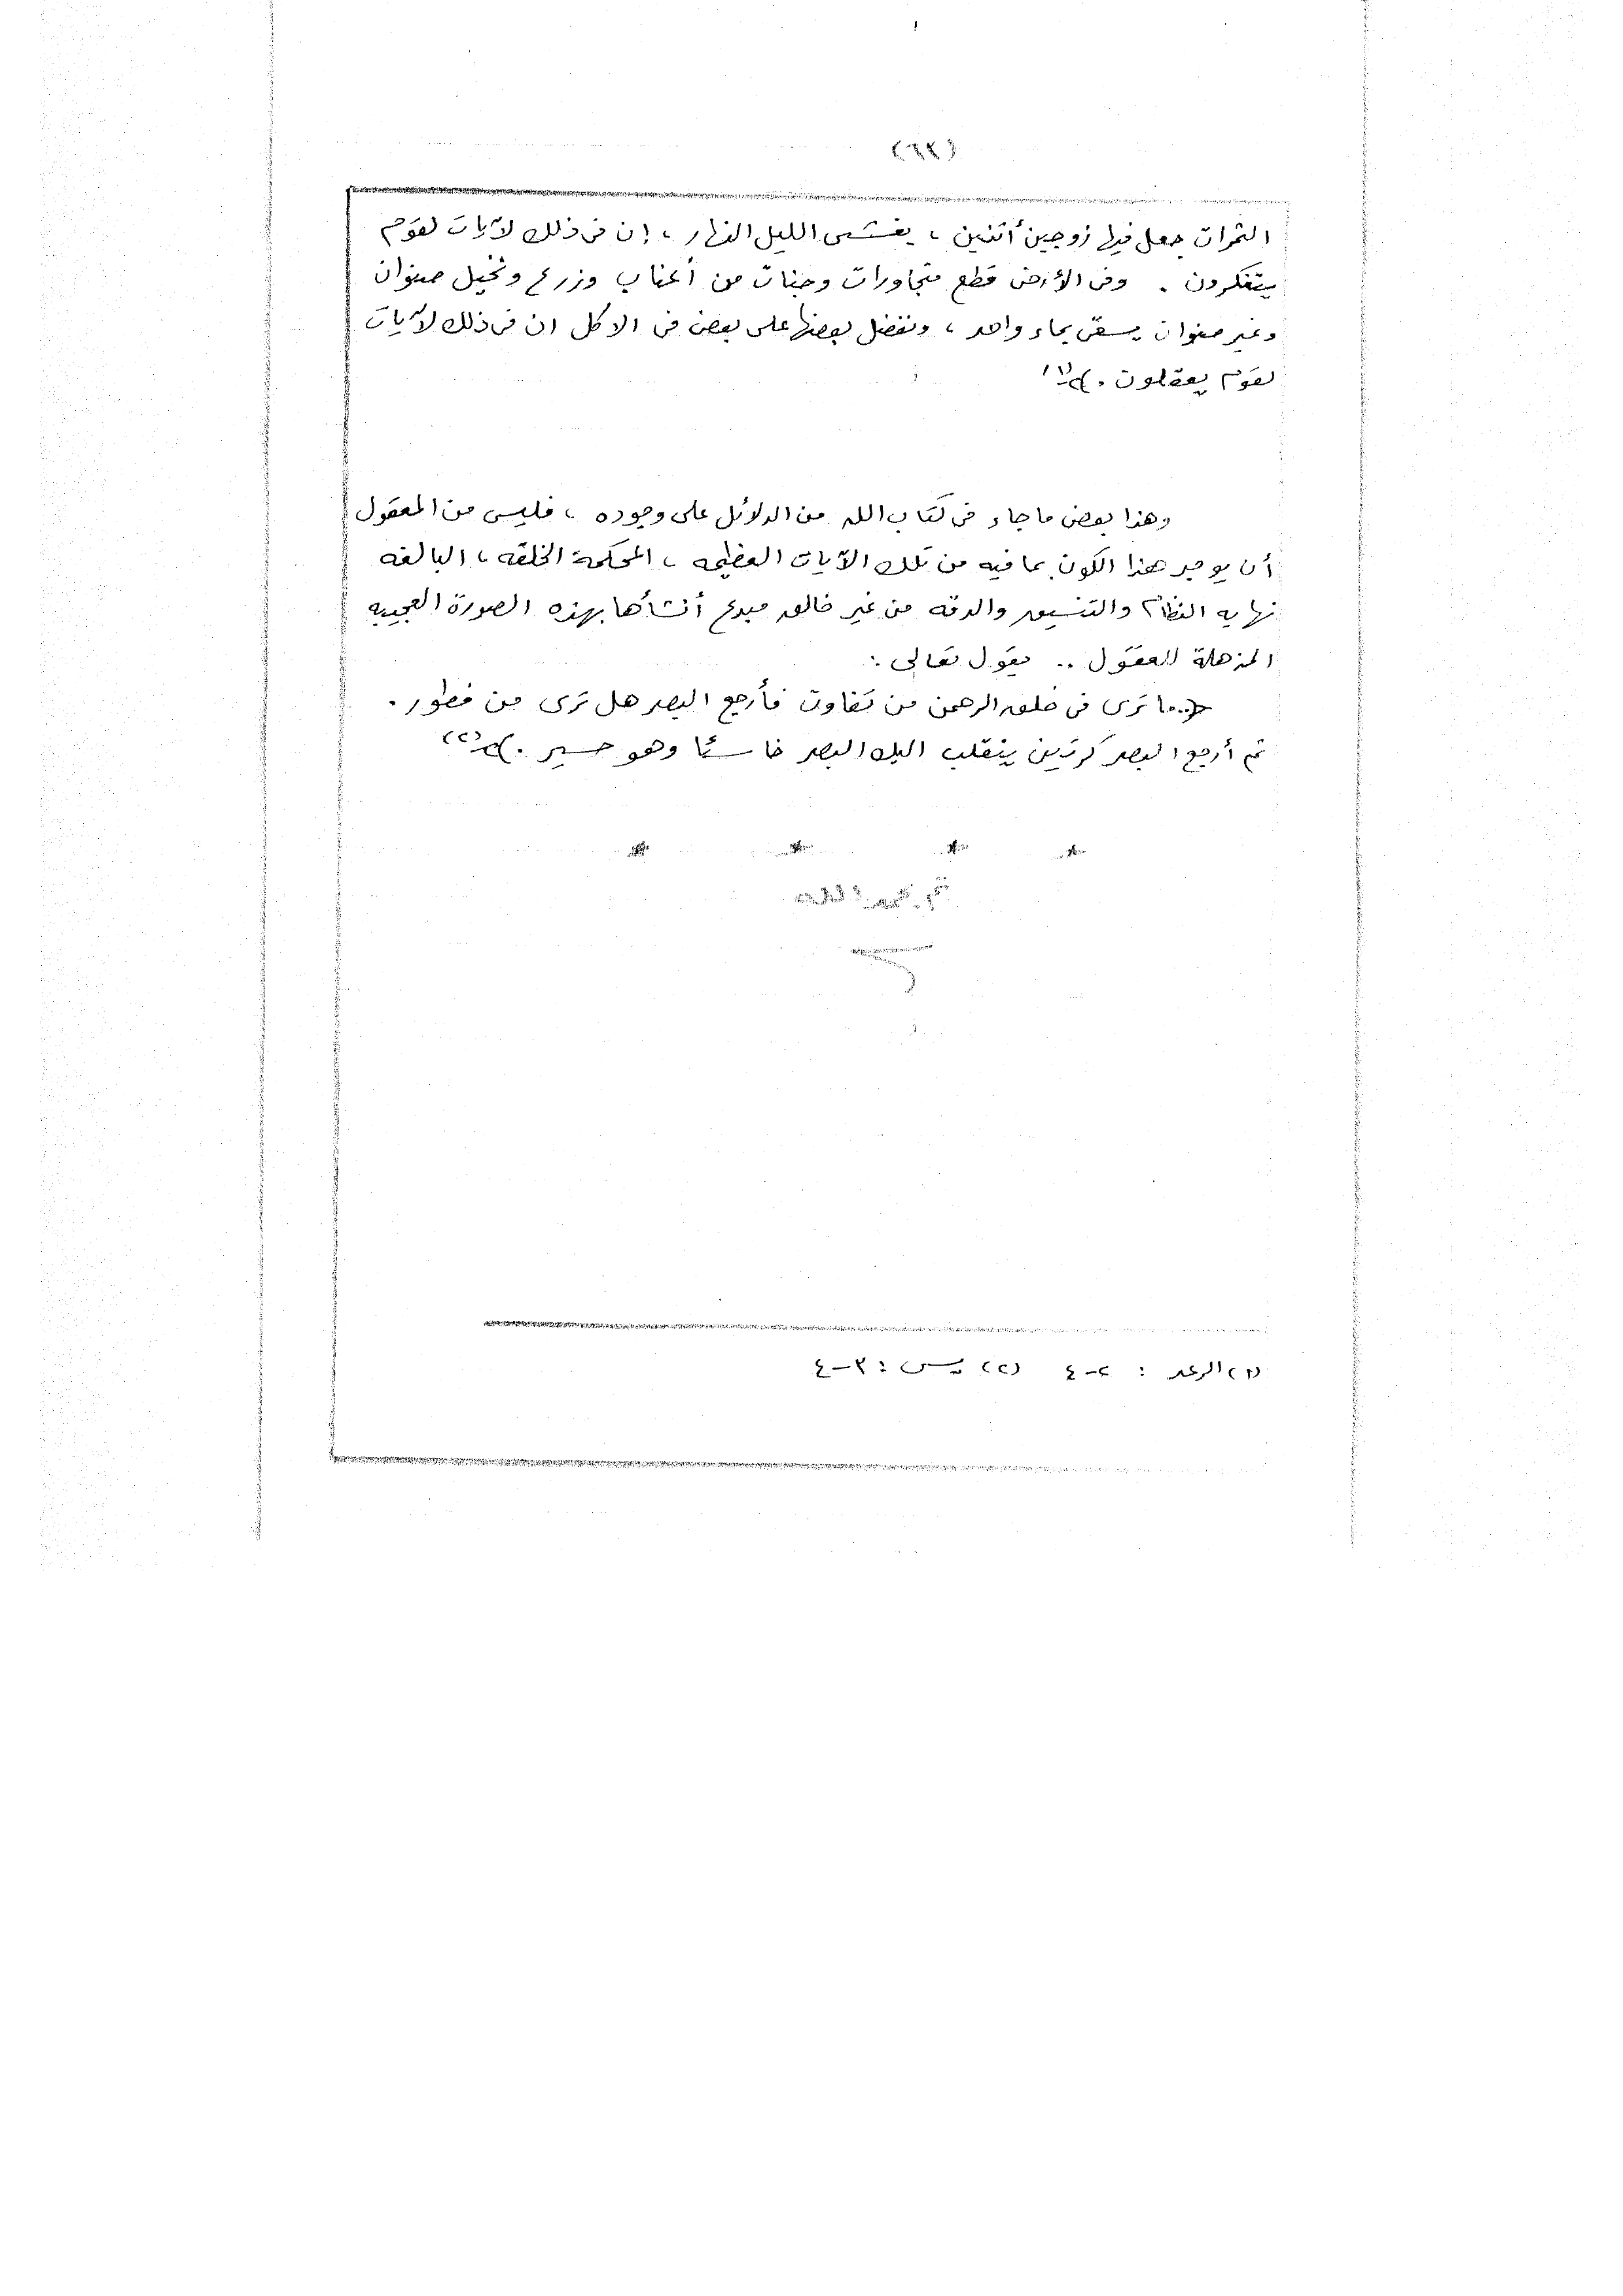 الثمرات جعل فيها زوجين أثنين ، يغشى الليل النهار ، إن فى ذلك لآيات لقوم
يتفكرون . وفى الأرض قطع متجاورات وجنات من أعناب وزرع ونخيل صنوان
وغير صنوان يسقى بماء واحد ، ونفضل بعضها على بعض فى الاكل ان فى ذلك لآيات
لقوم يعقلون . ﴾(١)
وهذا بعض ما جاء فى كتاب الله من الدلائل على وجوده ، فليس من المعقول
أن يوجد هذا الكون بما فيه من تلك الآيات العظيمه ، المحكمة الخلقه ، البالغه
نهايه النظام والتنسيق والدقه من غير خالق مبدع أنشأها بهذه الصورة العجيبه
المذهلة للعقول .. يقول تعالى :
﴿.. ما ترى فى خلق الرحمن من تفاوت فأرجع البصر هل ترى من فطور .
ثم أرجع البصر كرتين ينقلب اليك البصر خاسئا وهو حسير . ﴾(٢)
* * * *
(١) الرعد : ٣-٤ (٢) يس : ٣-٤